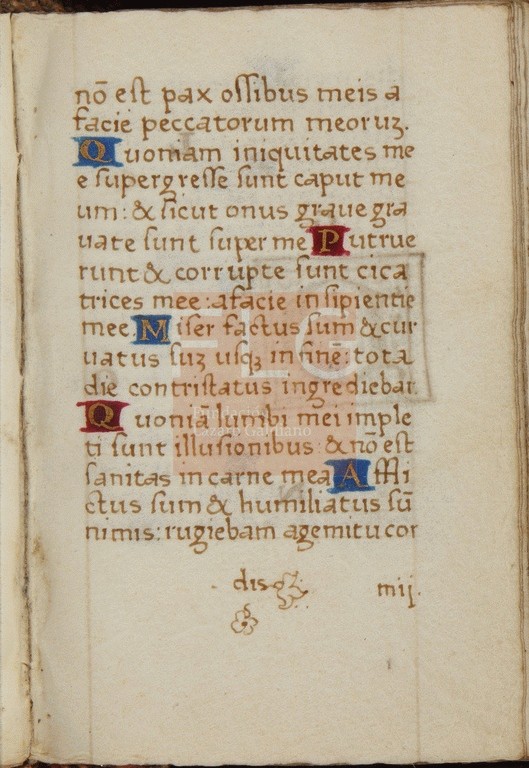 nō est pax ossibus meis a
facie peccatorum meoruz.
Quoniam iniquitates me
e supergresse sunt caput me
um: & sicut onus graue gra
uate sunt super me Putrue
runt & corrupte sunt cica
trices mee: a facie insipientie
mee. Miser factus sum & cur
uatus suz usqȝ in finē: tota
die contristatus ingrediebar
Quoniā lumbi mei imple
ti sunt illusionibus: & nō est
sanitas in carne mea Affli
ctus sum & humiliatus sū
nimis: rugiebam a gemitu cor
dis
miij.
FLG
Fundación
Lázaro Galdiano